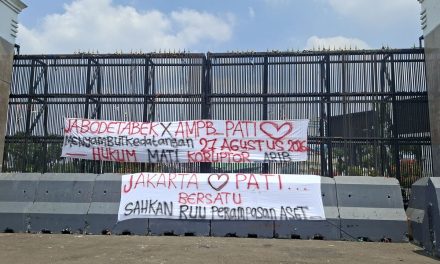 JABODETABEK X AMPB PATI ♡
MENYAMBUT KEDATANGAN 27 AGUSTUS 2026
HUKUM MATI KORUPTOR
JAKARTA ♡ PATI...
BERSATU
SAHKAN RUU PERAMPASAN ASET